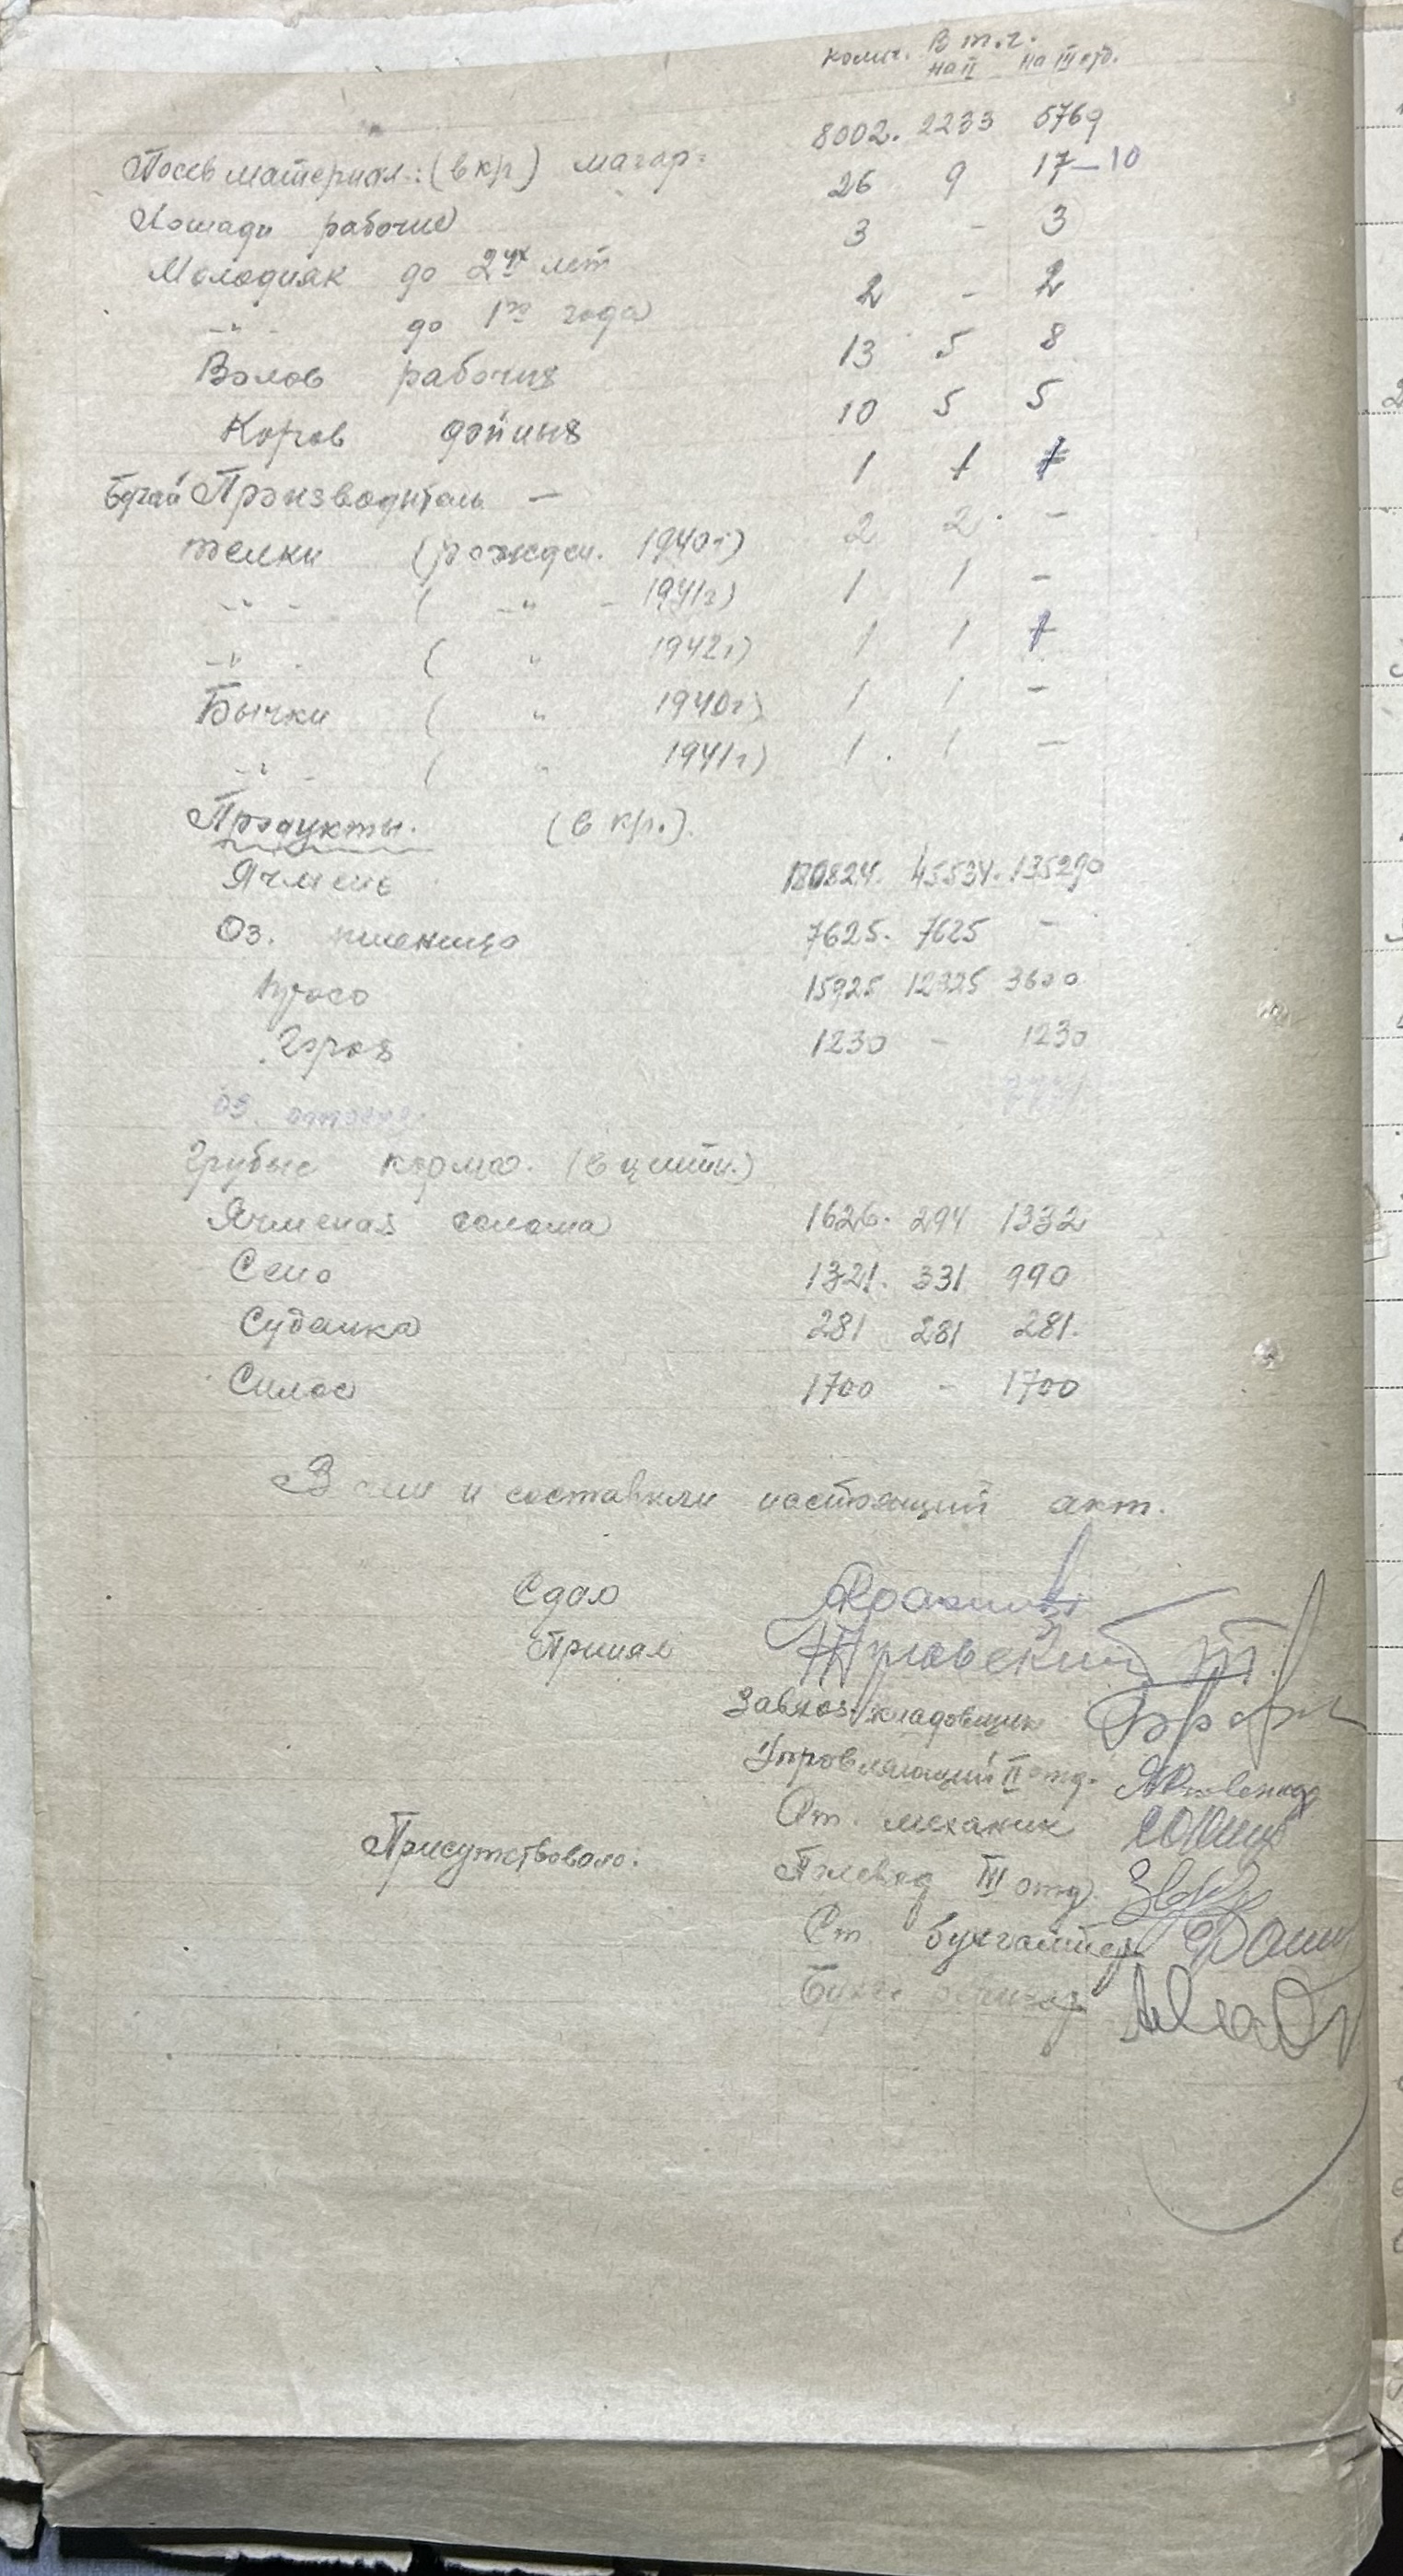 колич. В т.ч.
на II на III отд.
Посев материал: (в кг) магар: 8002. 2233 5769
Лошади рабочие 26 9 17—10
Молодняк до 2ух лет 3 - 3
-"- до 1го года 2 - 2
Волов рабочих 13 5 8
Коров дойных 10 5 5
Бугай Производитель — 1 1
телки (рожден. 1940г) 2 2 -
-"- ( -"- 1941г) 1 1 -
-"- ( " 1942г) 1 1
Бычки ( " 1940г) 1 1 -
-"- ( " 1941г) 1 1 —
Продукты. (в кг.)
Ячмень 180824. 45534. 135290
Оз. пшеница 7625. 7625 -
Просо 15925 12325 3600
Горох 1230 - 1230
оз.
Грубые корма. (в центн.)
Ячменая солома 1626. 294 1332
Сено 1321. 331 990
Суданка 281 281 281.
Силос 1700 - 1700
В чем и составили настоящий акт.
Сдал
Принял
Завхоз-кладовщик
Управляющий II отд.
Ст. механик
Присутствовало:
Полевод III отд.
Ст. бухгалтер
Бухг.